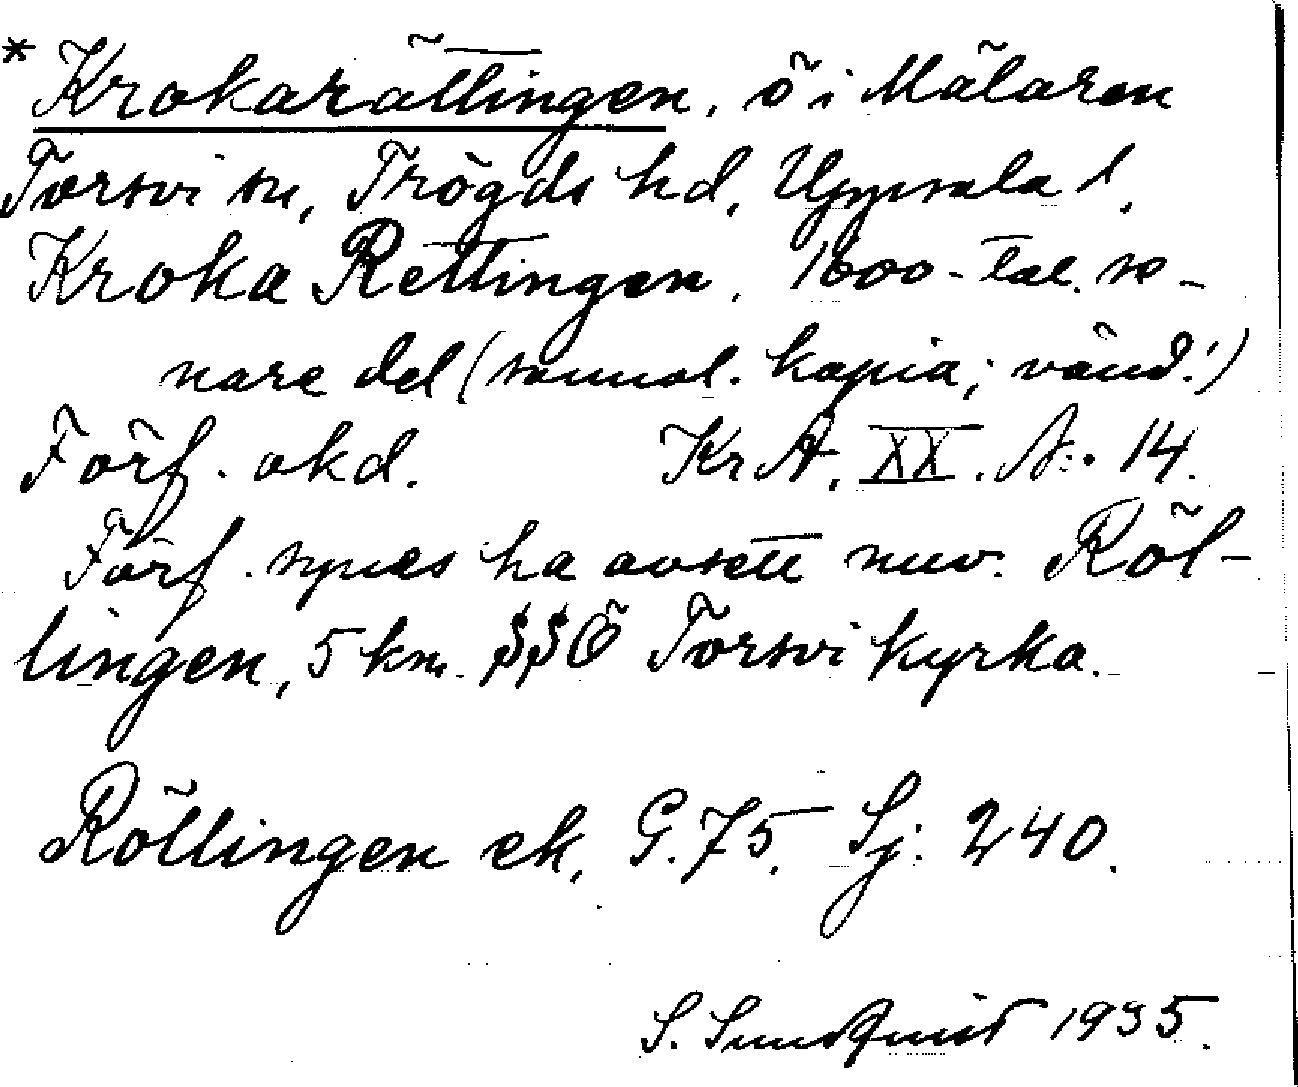 * Krokarättingen, ö i Mälaren
Torsvi sn, Trögds hd, Uppsala l.
Kroka Rettingen. 1600-tal. se-
nare del (sannol. kopia; vänd!)
Förf. okd. KrA, XX. A: 14.
Förf. synes ha avsett nuv. Röl-
lingen, 5 km SSÖ Torsvi kyrka.
Röllingen ek, G. 75. Sj: 240.
S. Sundquist 1935.